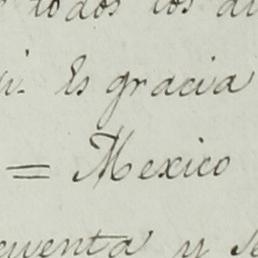 todos los di
i. Es gracia
= Mexico
cuenta y se